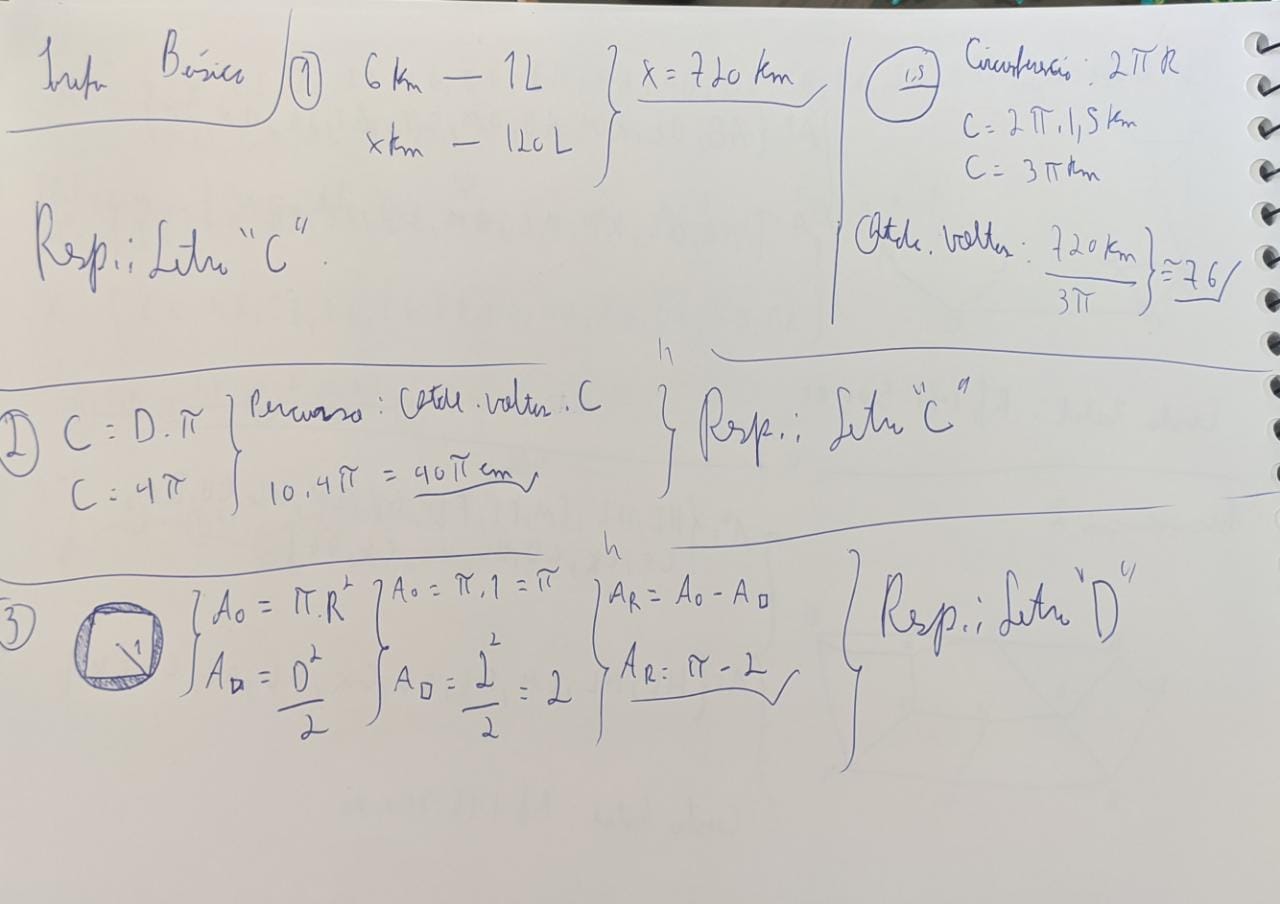 Básico
① 6 km — 1L
x km — 120L
x = 720 km
Resp.: Letra "C".
1,5
Circunferência: 2πR
C = 2π.1,5 km
C = 3π km
Qtde. voltas: 720 km / 3π ≅ 76
② C = D.π
C = 4π
Percurso: Qtde. voltas . C
10.4π = 40π cm
Resp.: Letra "C"
③ 1
A○ = π.R²
A□ = D²/2
A○ = π.1 = π
A□ = 2²/2 = 2
AR = A○ - A□
AR = π - 2
Resp.: Letra "D"